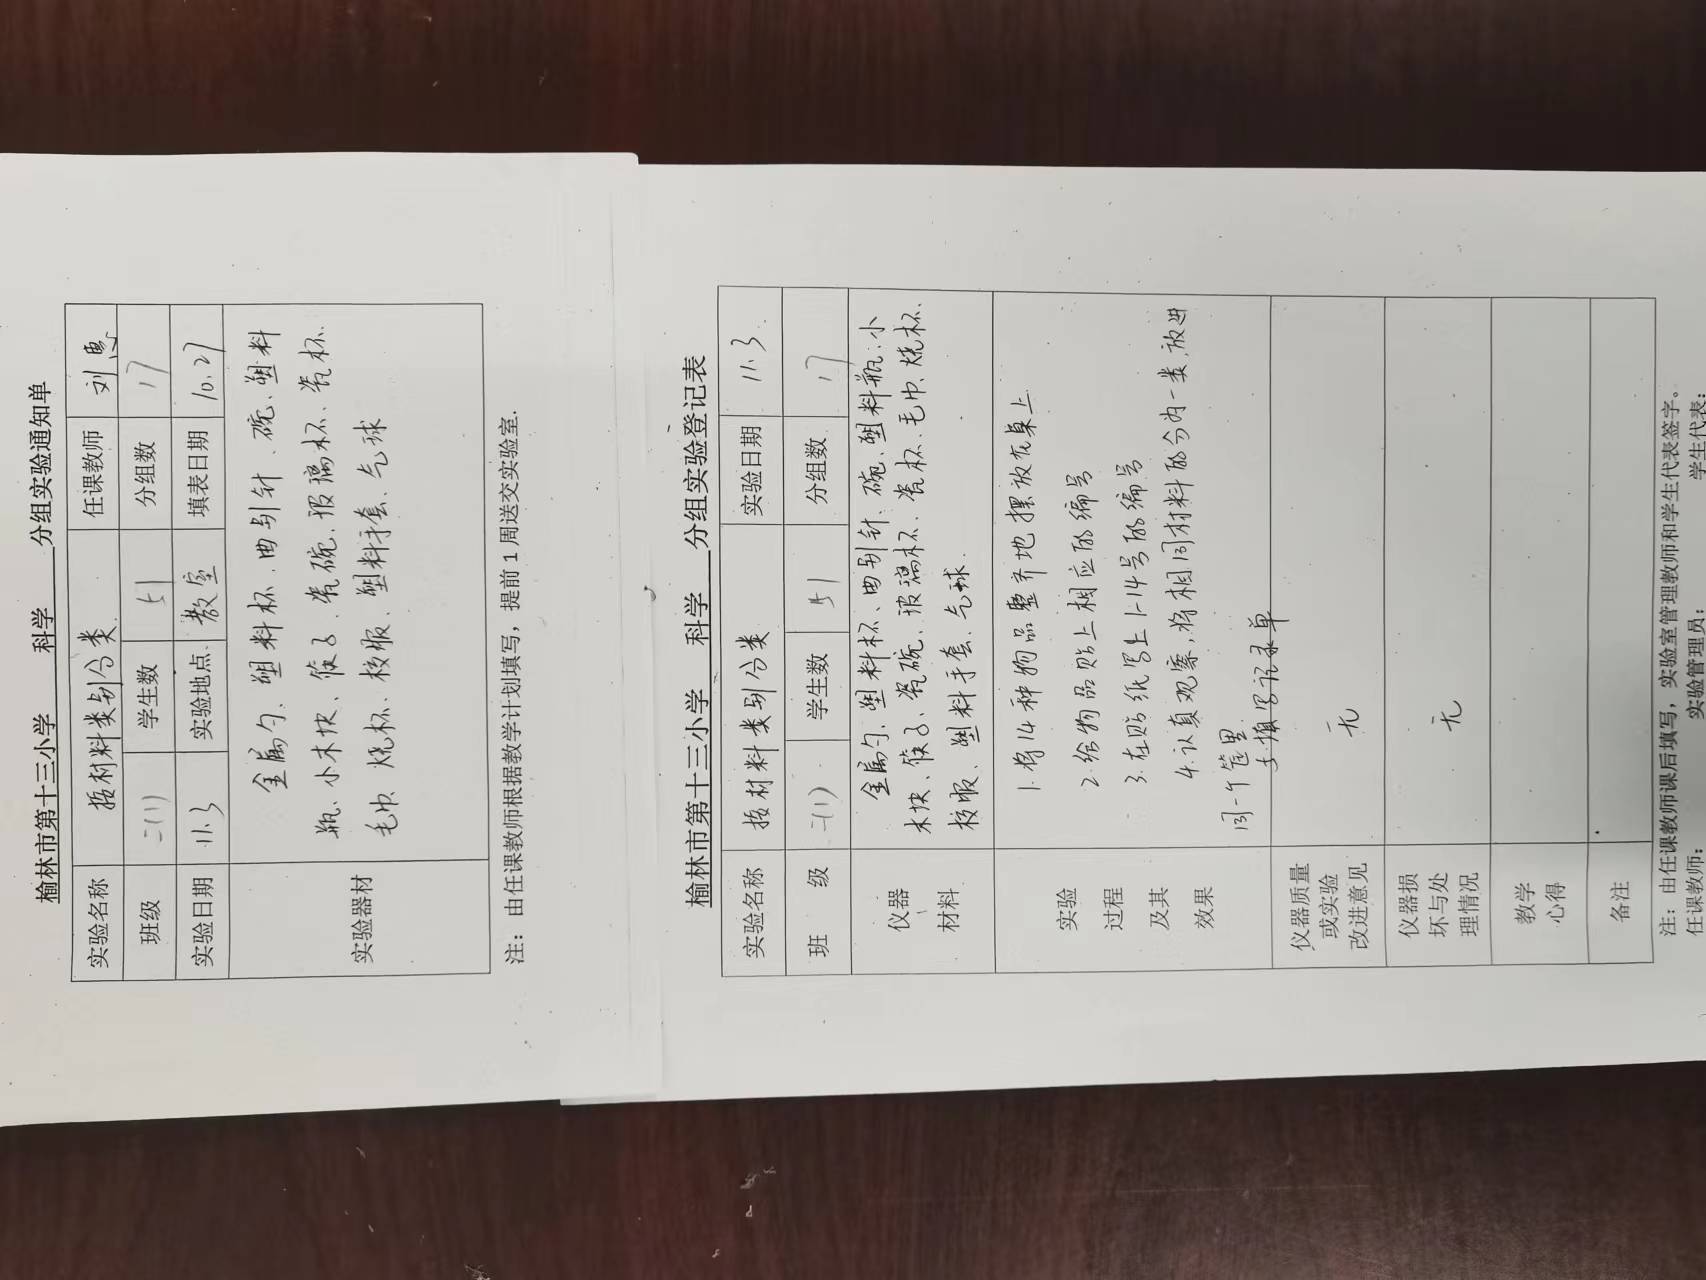 榆林市第十三小学 科学 分组实验通知单
实验名称 按材料类别分类 任课教师 刘惠
班级 二(1) 学生数 51 分组数 17
实验日期 11.3 实验地点 教室 填表日期 10.27
实验器材
金属勺、塑料杯、曲别针、碗、塑料
瓶、小木块、筷子、瓷碗、玻璃杯、瓷杯、
毛巾、烧杯、校服、塑料手套、气球
注：由任课教师根据教学计划填写，提前1周送交实验室.
榆林市第十三小学 科学 分组实验登记表
实验名称 按材料类别分类 实验日期 11.3
班 级 二(1) 学生数 51 分组数 17
仪器
材料
金属勺、塑料杯、曲别针、碗、塑料瓶、小
木块、筷子、瓷碗、玻璃杯、瓷杯、毛巾、烧杯、
校服、塑料手套、气球.
实验
过程
及其
效果
1.将14种物品整齐地摆放在桌上
2.给物品贴上相应的编号
3.在贴纸写上1-14号的编号
4.认真观察,将相同材料的分为一类,放进
同一个筐里
5.填写记录单
仪器质量
或实验
改进意见
无
仪器损
坏与处
理情况
无
教学
心得
备注
注：由任课教师课后填写，实验室管理教师和学生代表签字。
任课教师： 实验管理员： 学生代表：